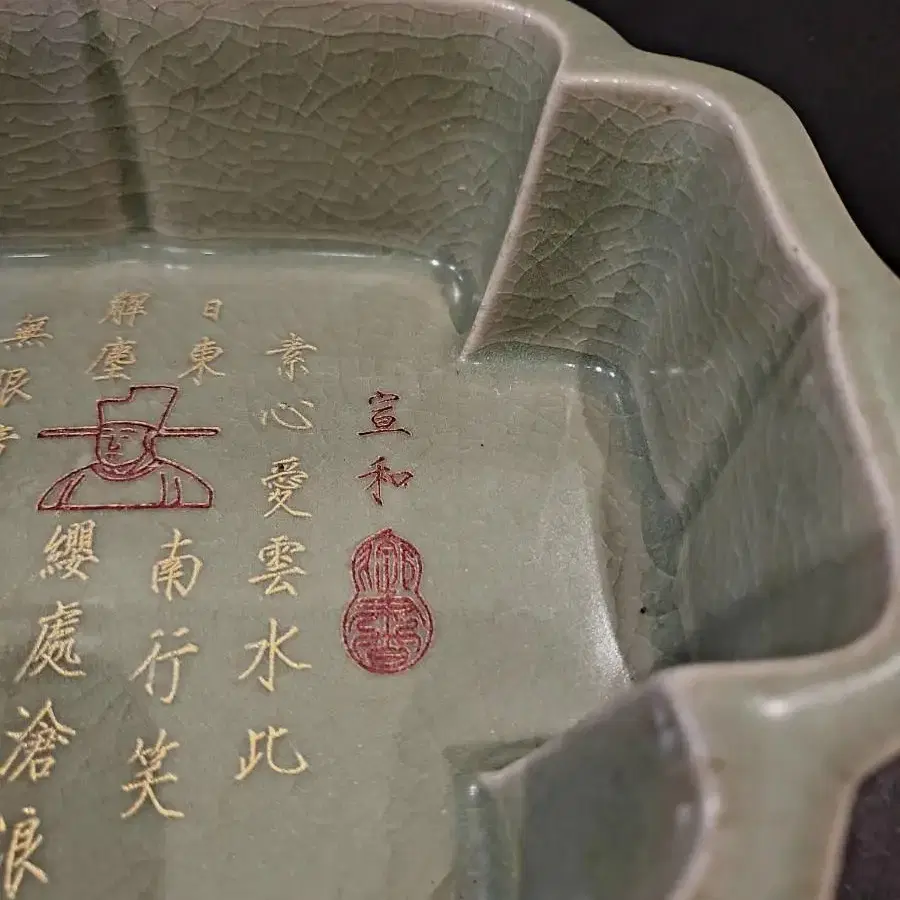 宣和
素心愛雲水此
日東南行笑
解塵纓處滄浪
無限